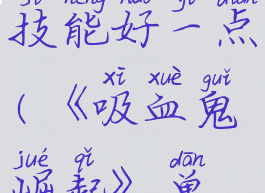 jì néng hǎo yì diǎn
技能好一点
xī xuè guǐ
(《吸血鬼
jué qǐ dān
崛起》单